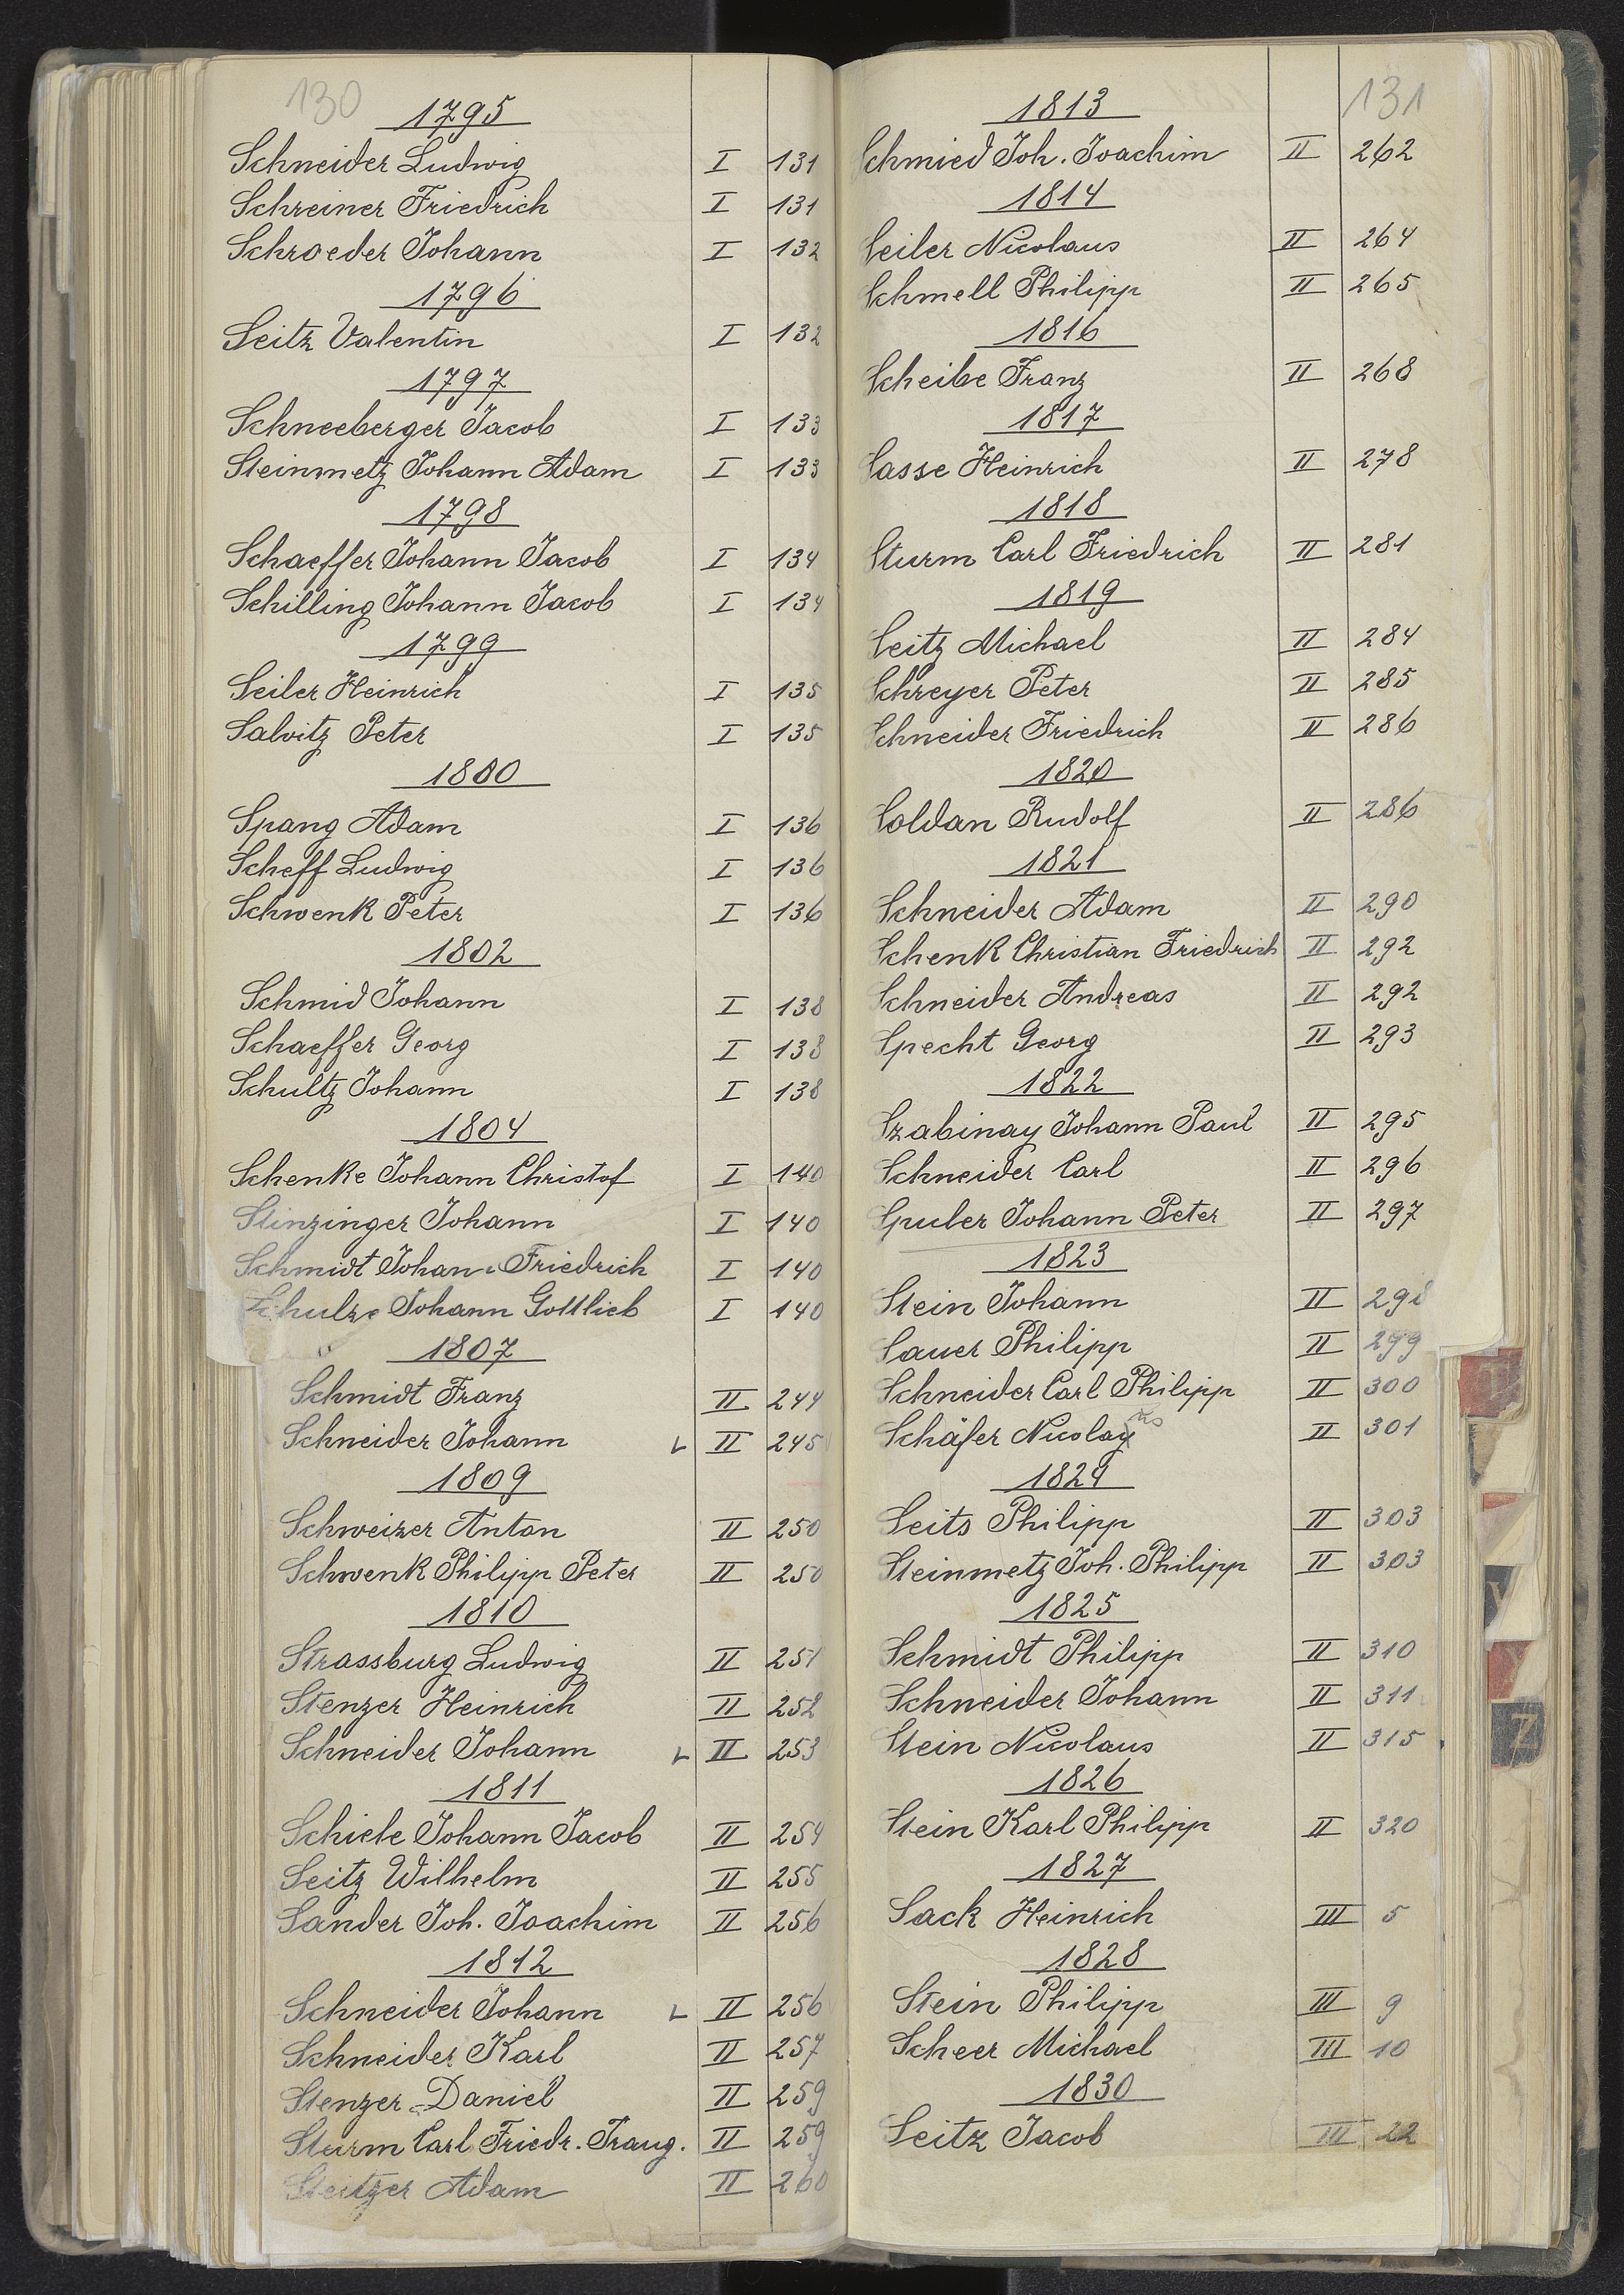 130
1795
Schneider Ludwig I 131
Schreiner Friedrich I 131
Schroeder Johann I 132
1796
Seitz Valentin I 132
1797
Schneeberger Jacob I 133
Steinmetz Johann Adam I 133
1798
Schaeffer Johann Jacob I 134
Schilling Johann Jacob I 134
1799
Seiler Heinrich I 135
Salvitz Peter I 135
1800
Spang Adam I 136
Scheff Ludwig I 136
Schwenk Peter I 136
1802
Schmid Johann I 138
Schaeffer Georg I 138
Schultz Johann I 138
1804
Schenke Johann Christof I 140
Stinzinger Johann I 140
Schmidt Johann Friedrich I 140
Schulze Johann Gottlieb I 140
1807
Schmidt Franz II 244
Schneider Johann II 245
1809
Schweizer Anton II 250
Schwenk Philipp Peter II 250
1810
Strassburg Ludwig II 251
Stenzer Heinrich II 252
Schneider Johann II 253
1811
Schiele Johann Jacob II 254
Seitz Wilhelm II 255
Sander Joh. Joachim II 256
1812
Schneider Johann II 256
Schneider Karl II 257
Stenzer Daniel II 259
Sturm Carl Friedr. Traug. II 259
Steitzer Adam II 260
131
1813
Schmied Joh. Joachim II 262
1814
Seiler Nicolaus II 264
Schmell Philipp II 265
1816
Scheibe Franz II 268
1817
Sasse Heinrich II 278
1818
Sturm Carl Friedrich II 281
1819
Seitz Michael II 284
Schreyer Peter II 285
Schneider Friedrich II 286
1820
Soldan Rudolf II 286
1821
Schneider Adam II 290
Schenk Christian Friedrich II 292
Schneider Andreas II 292
Specht Georg II 293
1822
Szabinay Johann Paul II 295
Schneider Carl II 296
Spuler Johann Peter II 297
1823
Stein Johann II 298
Sauer Philipp II 299
Schneider Carl Philipp II 300
Schäfer Nicolay II 301
1824
Seits Philipp II 303
Steinmetz Joh. Philipp II 303
1825
Schmidt Philipp II 310
Schneider Johann II 311
Stein Nicolaus II 315
1826
Stein Karl Philipp II 320
1827
Sack Heinrich III 5
1828
Stein Philipp III 9
Scheer Michael III 10
1830
Seitz Jacob III 22
Z